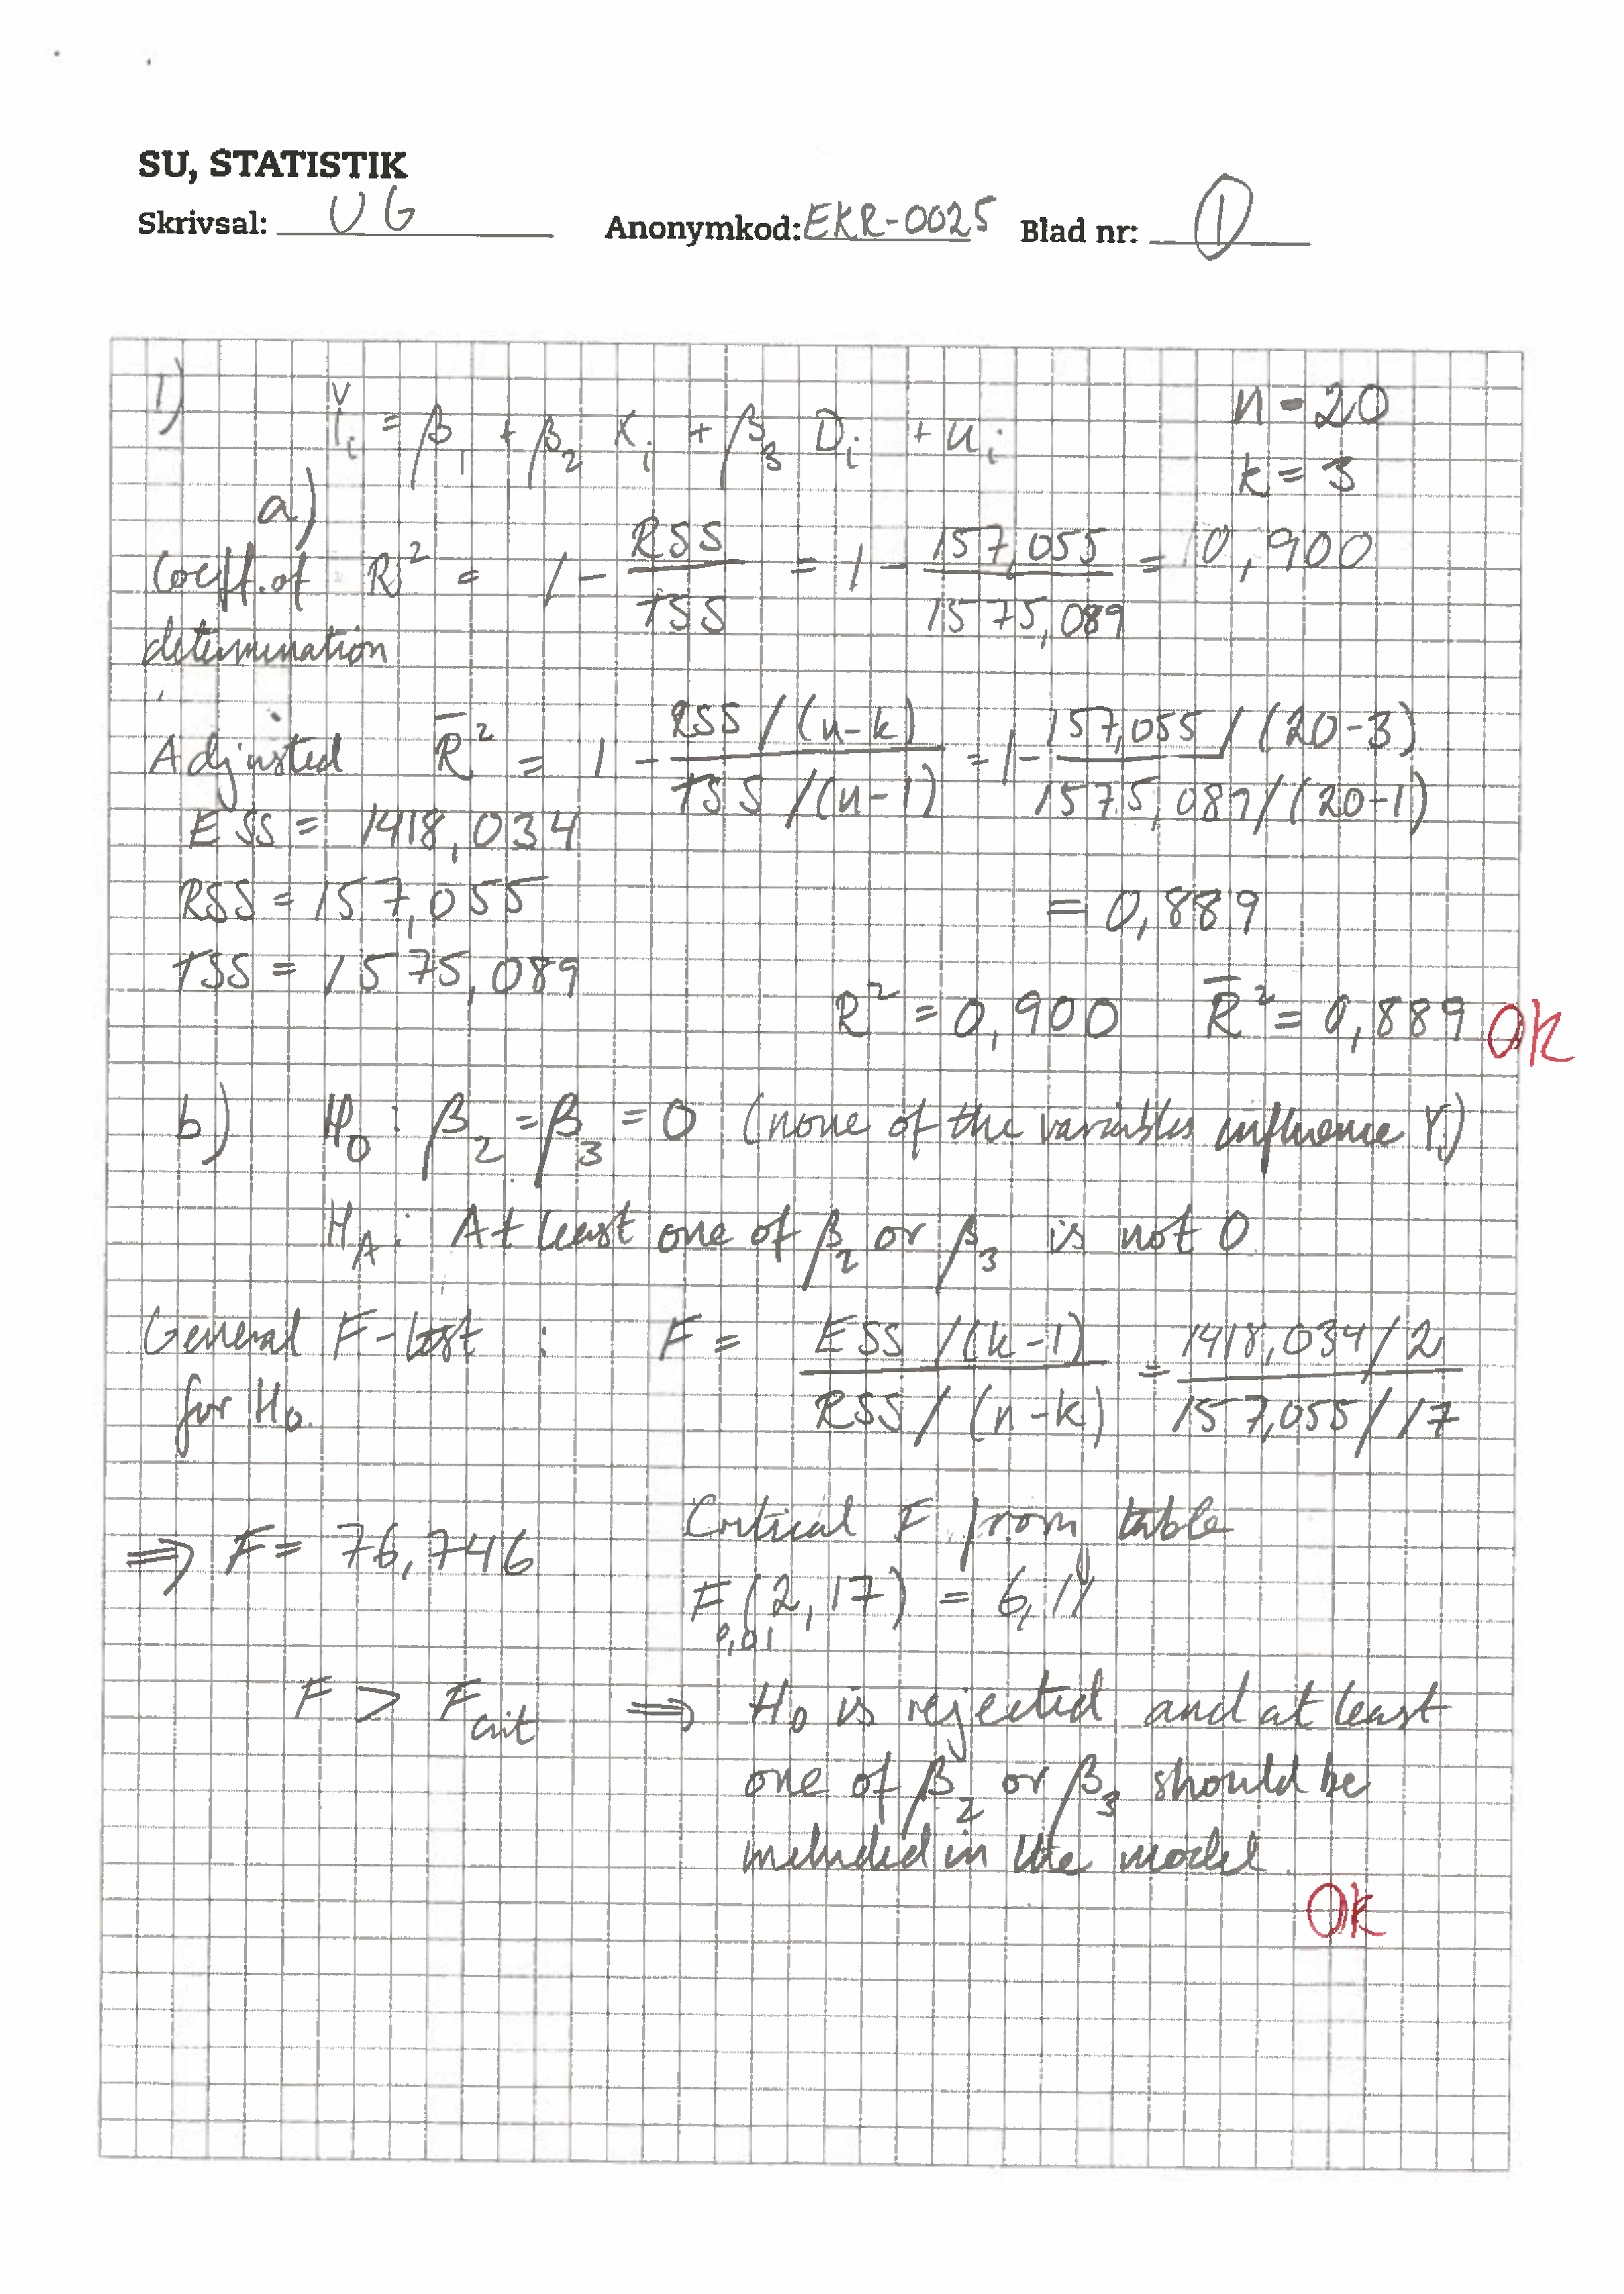 SU, STATISTIK
Skrivsal: UG Anonymkod: EKR-0025 Blad nr: 1
1) Yi = β1 + β2 Xi + β3 Di + ui n = 20
k = 3
a)
Coeff. of determination R² = 1 - RSS / TSS = 1 - 157,055 / 1575,089 = 0,900
Adjusted R̄² = 1 - RSS/(n-k) / TSS/(n-1) = 1 - 157,055/(20-3) / 1575,089/(20-1)
ESS = 1418,034
RSS = 157,055 = 0,889
TSS = 1575,089
R² = 0,900 R̄² = 0,889 OK
b) H0 : β2 = β3 = 0 (none of the variables influence Y)
HA : At least one of β2 or β3 is not 0
General F-test : F = ESS/(k-1) / RSS/(n-k) = 1418,034/2 / 157,055/17
for H0.
Critical F from table
⇒ F = 76,746
F0,01(2,17) = 6,11
F > Fcrit ⇒ H0 is rejected and at least
one of β2 or β3 should be
included in the model.
OK